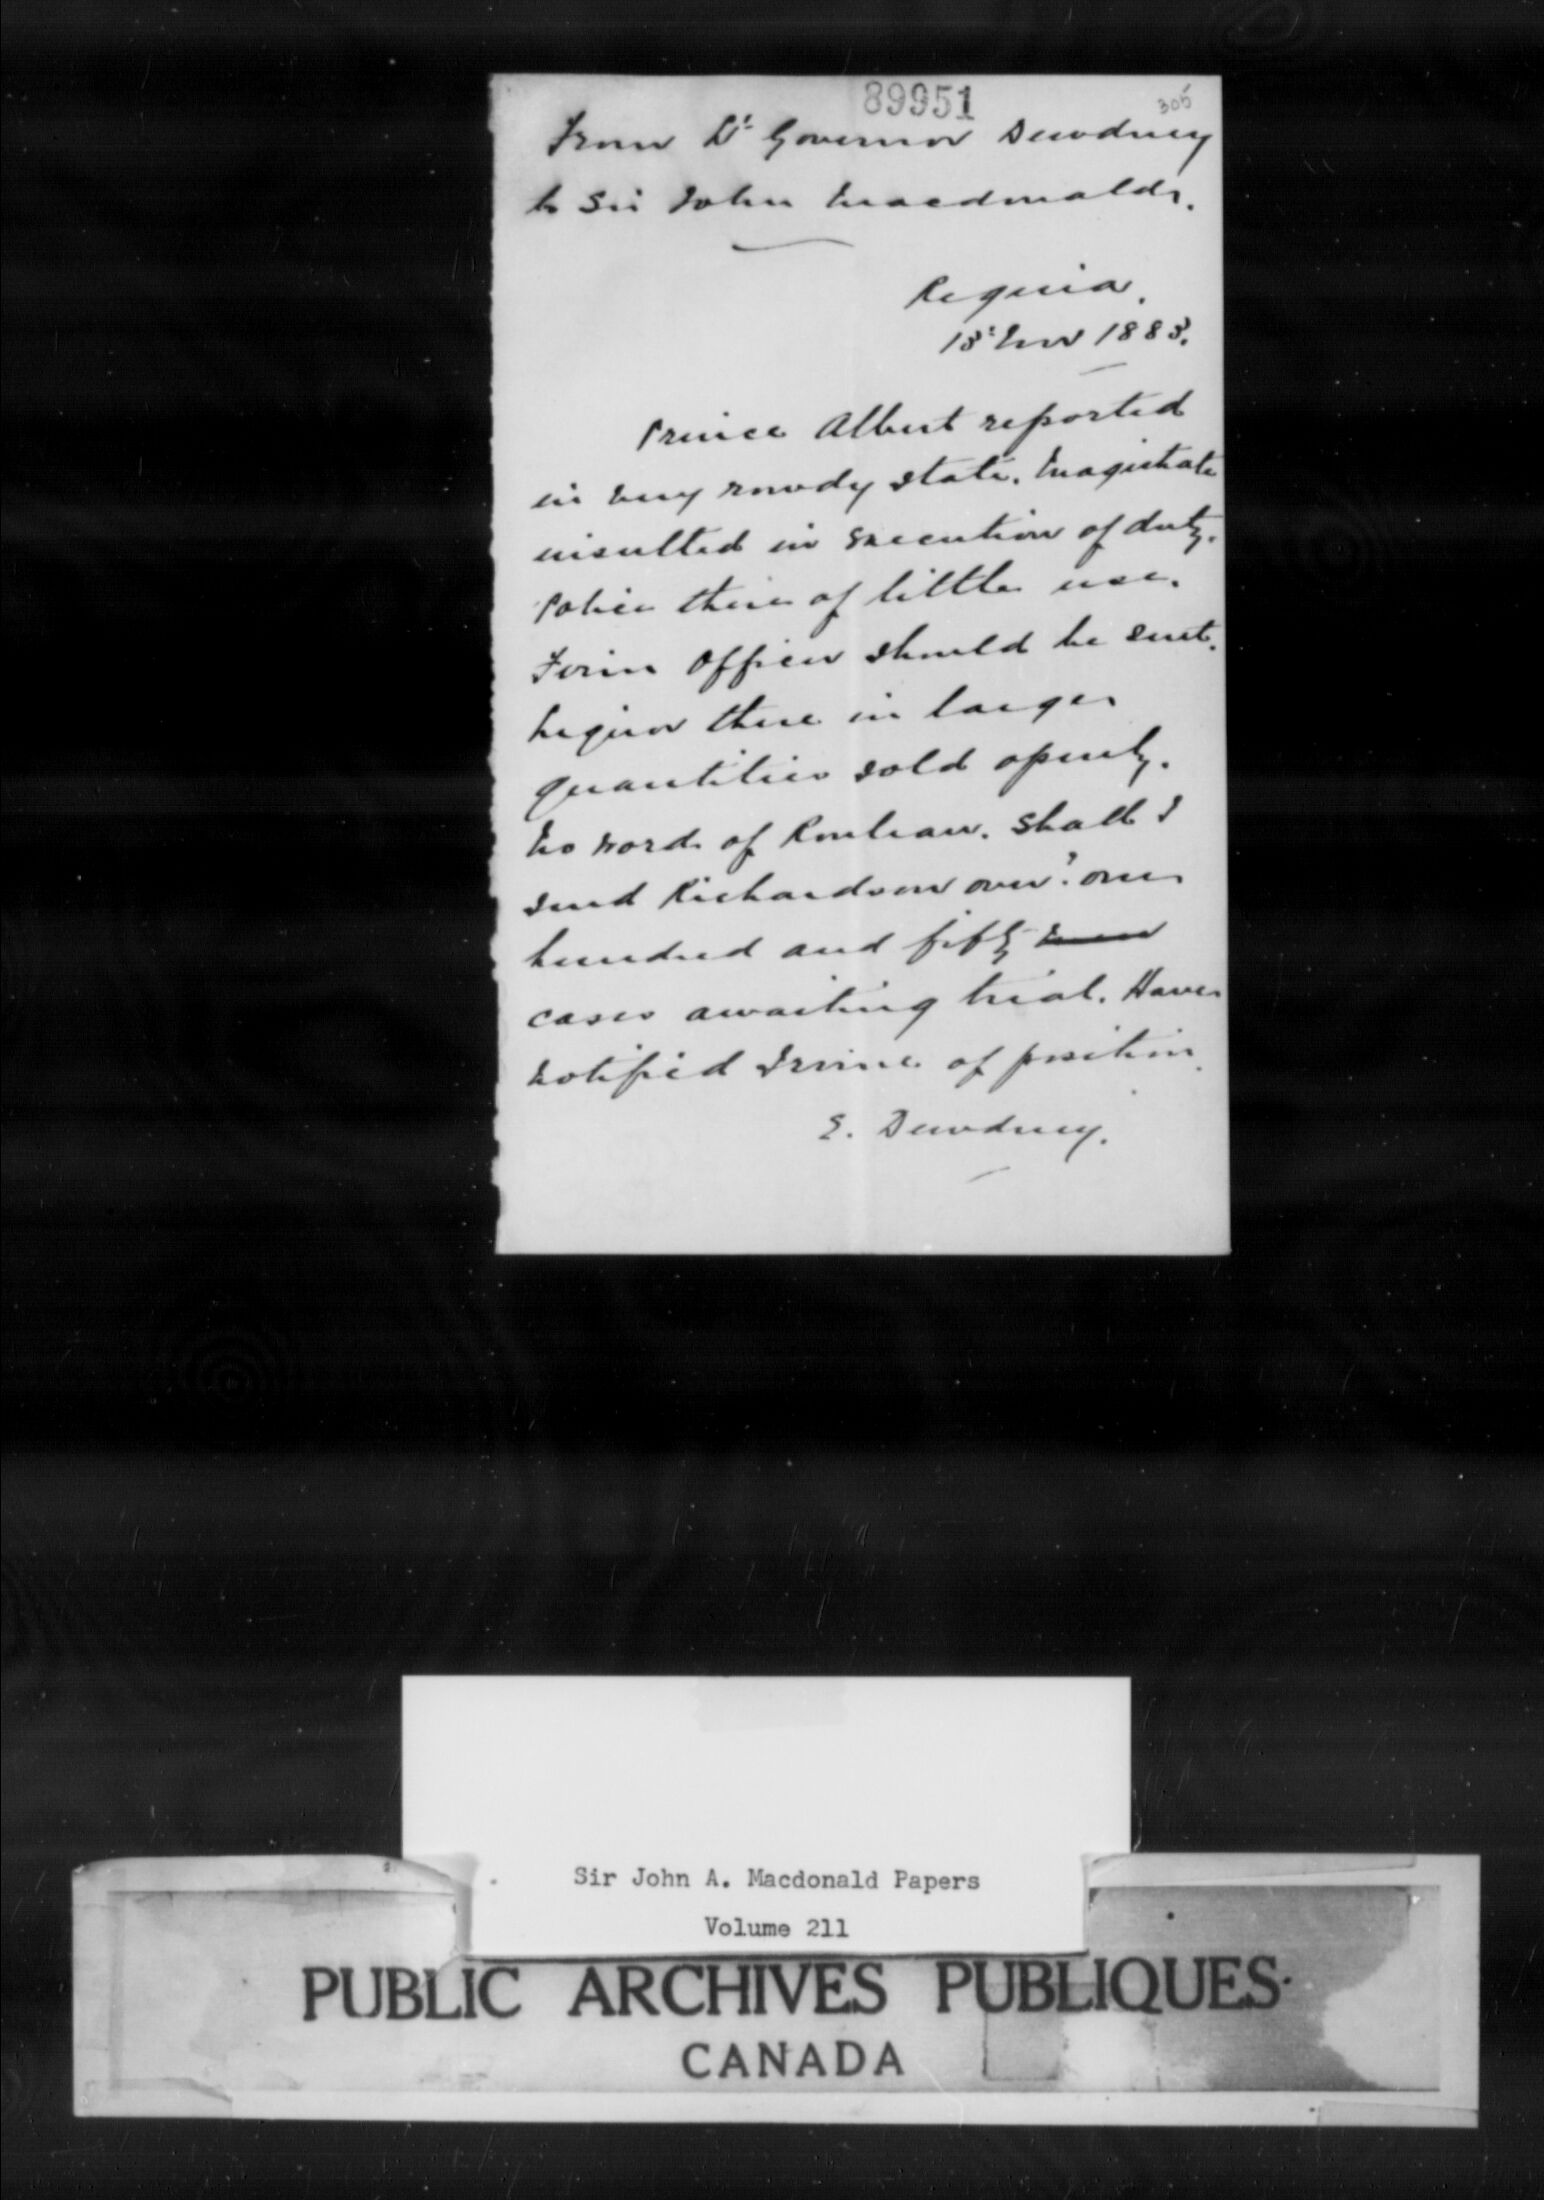 89951
305
From Lt Governor Dewdney
to Sir John Macdonald.
Regina.
13t Nov 1883.
Prince Albert reported
in very rowdy state. Magistrate
insulted in execution of duty.
Police there of little use.
Firm Officer should be sent.
Liquor there in large
quantities sold openly.
No word of Rouleau. Shall I
send Richardson over? One
hundred and fifty men
cases awaiting trial. Have
notified Irvine of position.
E. Dewdney.
Sir John A. Macdonald Papers
Volume 211
PUBLIC ARCHIVES PUBLIQUES
CANADA